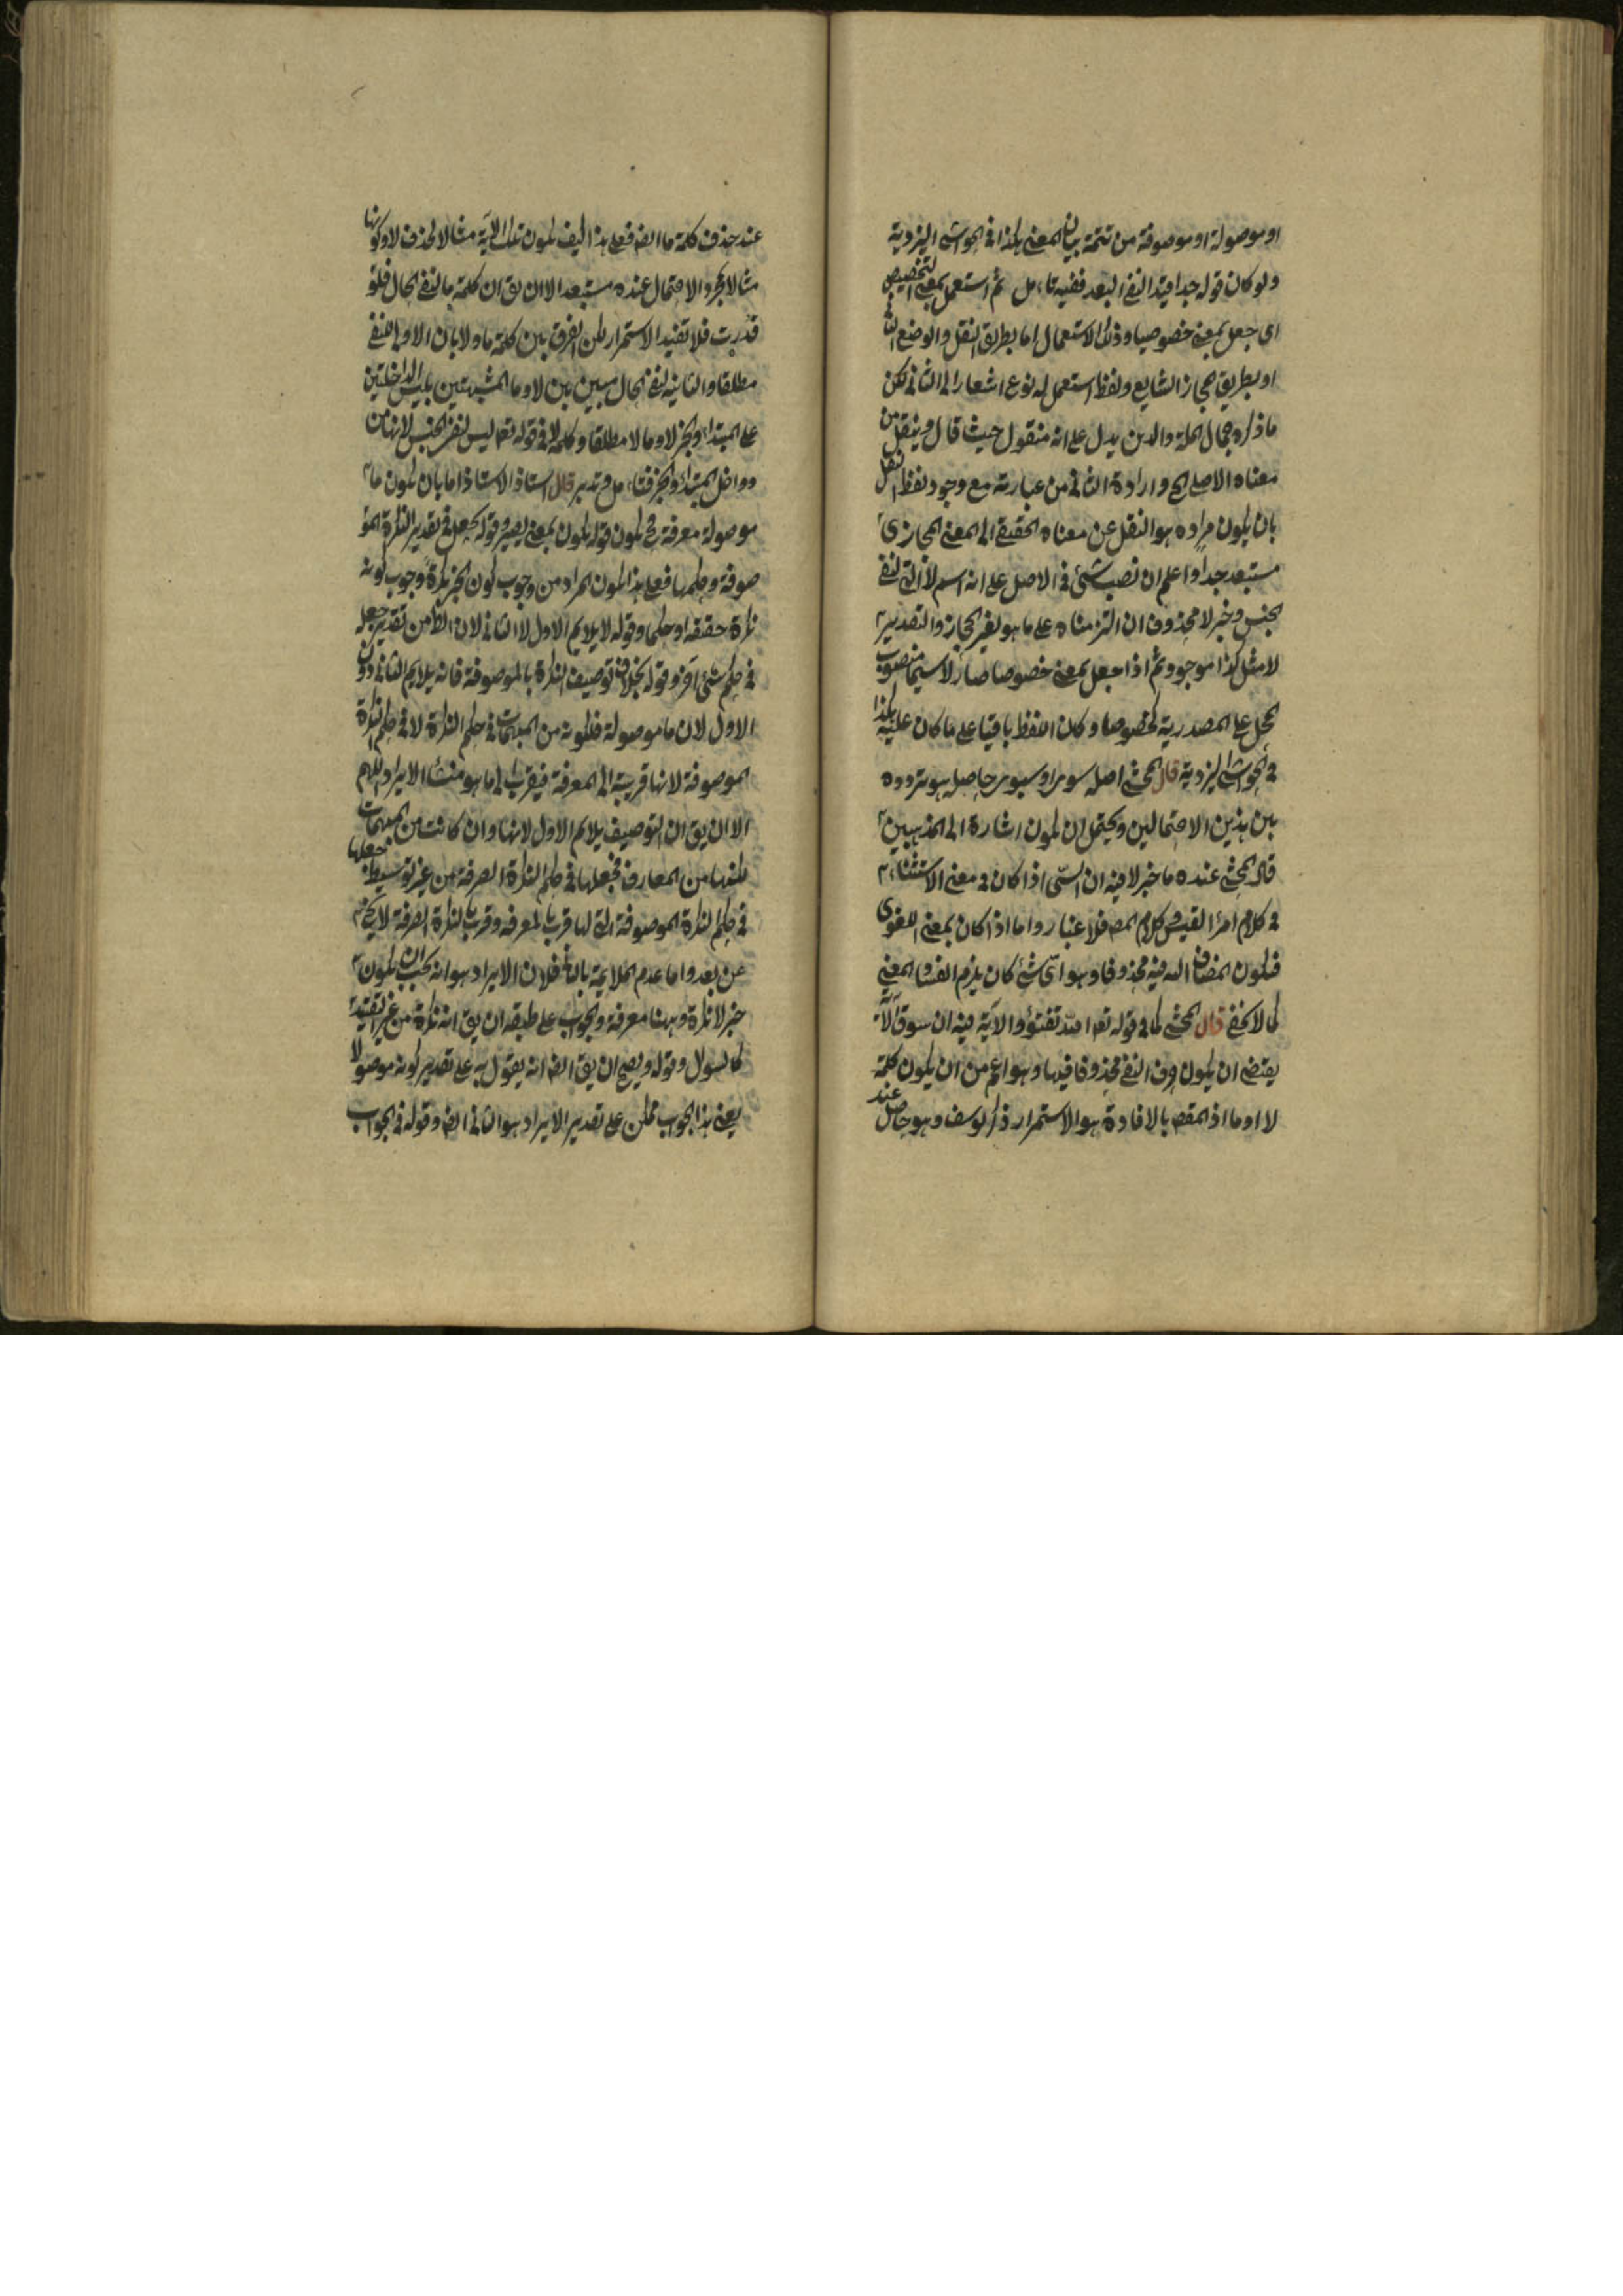 او موصولة او موصوفة من تتمة بيان المعنى هكذا فى الحواشى اليزدية
ولو كان قوله جدا قيد النفى البعد ففيه تامل ثم استعمل بمعنى التخصيص
اى جعل بمعنى خصوصا وذلك الاستعمال اما بطريق النقل والوضع الثانى
او بطريق المجاز الشايع ولفظ استعمل له نوع اشعار الى الثانى لكن
ما ذكره جمال الملة والدين يدل على انه منقول حيث قال وينقل من
معناه الاصلى الخ وارادة الثانى من عبارته مع وجود لفظ النقل
بان يكون مراده هو النقل عن معناه الحقيقى الى المعنى المجازى
مستبعد جدا واعلم ان نصب شئ فى الاصل على انه اسم لا التى لنفى
الجنس وخبر لا محذوف ان التزمناه على ما هو لغير الحجاز والتقدير
لا مثل كذا موجود ثم اذا جعل بمعنى خصوصا صار لا سيما منصوب
المحل على المصدرية لخصوصا وكان اللفظ باقيا على ما كان عليه هكذا
فى الحواشى اليزدية قال المحشى اصله سوى او سيوى حاصله هو تردده
بين هذين الاحتمالين ويحتمل ان يكون اشارة الى المذهبين
قال المحشى عنده ما خبر لا فيه ان السى اذا كان فى معنى الاستثناء
فى كلام امرأ القيس وكلام المصـ فلا غبار واما اذا كان بمعنى اللغوى
فيكون المضاف اليه فيه محذوفا وهو اى شئ كان يلزم الفساد المعنى
كما لا يخفى قال المحشى كما فى قوله تعا تالله تفتؤ والآية فيه ان سوق الآية
يقتضى ان يكون حرف النفى محذوفا فيها وهو اعم من ان يكون كلمة
لا او ما اذ المقصـ بالافادة هو الاستمرار ذكر يوسف وهو حاصل عند
عند حذف كلمة ما ايضـ فعلى هذا كيف يكون تلك الآية مثالا لحذف لا وكونها
مثالا بمجرد الاحتمال عنده مستبعد الا ان يق ان كلمة ما لنفى الحال فلو
قدرت فلا تفيد الاستمرار لكن الفرق بين كلمة ما ولا بان الاولى لنفى
مطلقا والثانية لنفى الحال مبين بين لا وما المشبهتين بليس الداخلتين
على المبتداء والخبر لا وما لا مطلقا وكلمة لا فى قوله تعا ليس لنفى الجنس لانها من
دواخل المبتدأ والخبر فتامل وتدبر قال استاذ الاستاذ اما بان يكون ما
موصولة معرفة فح يكون قوله يكون بمعنى يصير وقوله يجعل فى تقدير النكرة المو
صوفة وحكمها فعلى هذا يكون المراد من وجوب كون الخبر نكرة وجوب كونه
نكرة حقيقة او حكما وقوله لا يلايم الاول لا الثانى لان الظ من تقدير جعله
فى حكم شئ آخر وقوله بخلاف توصيف النكرة بالموصوفة فانه يلايم الثانى دون
الاول لان ما موصولة فلكونه من المبهمات فى حكم النكرة لا فى حكم النكرة
الموصوفة لانها قريبة الى المعرفة فيقرب الى ما هو منشأ الايراد اللهم
الا ان يق ان التوصيف يلايم الاول لانها وان كانت من المبهمات
لكنها من المعارف فجعلها فى حكم النكرة الصرفة من غير توسيط جعلها
فى حكم النكرة الموصوفة التى لها قرب بالمعرفة وقرب بالنكرة الصرفة لا يخ
عن بعد واما عدم الملايمة بالثا فلان الايراد هو انه يجب ان يكون
خبر لا نكرة وههنا معرفة والجواب على طبقه ان يق انه نكرة من غير تقييد
كالسؤال وقوله ويصح ان يق ايضـ انه يقول به على تقدير كونه موصولا
يعنى هذا الجواب ممكن على تقدير الايراد هو الثانى ايضـ وقوله فى الجواب